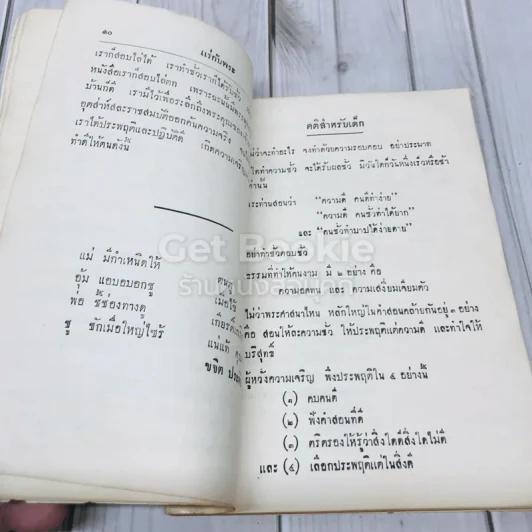 ๑๐
แม่กับพระ
เราก็สอบไล่ได้ เราทำชั่วเราก็ได้รับชั่ว
หนังสือเราก็สอบไล่ตก เพราะฉะนั้น
บ้านก็ดี เรามีไว้เพื่อระลึกถึงพระคุณของ
เราได้ประพฤติและปฏิบัติดี เกิดความเจริญ
ทำดีให้ตนดังนี้
แม่ มีกำเหนิดให้
อุ้ม แอบอบอกชู
พ่อ ชี้ช่องทางดู
ชู ชักเมื่อใหญ่ไซร้
คติสำหรับเด็ก
ไม่ว่าจะทำอะไร จงทำด้วยความรอบคอบ อย่าประมาท
ใดทำความชั่ว จะได้รับผลชั่ว มิวันใดก็วันหนึ่งเร็วหรือช้า
เท่านั้น
พระท่านสอนว่า “ความดี คนดีทำง่าย”
“ความดี คนชั่วทำได้ยาก”
และ “คนชั่วทำบาปได้ง่ายดาย”
อย่าทำชั่วคอบชั่ว
ธรรมที่ทำให้คนงาม มี ๒ อย่าง คือ
ความอดทน และ ความเสงี่ยมเจียมตัว
ไม่ว่าพระศาสนาไหน หลักใหญ่ในคำสอนคล้ายกันอยู่ ๓ อย่าง
คือ สอนให้ละความชั่ว ให้ประพฤติแต่ความดี และทำใจให้
บริสุทธิ์
ผู้หวังความเจริญ พึงประพฤติใน ๔ อย่างนี้
(๑) คบคนดี
(๒) ฟังคำสอนที่ดี
(๓) ตริตรองให้รู้ว่าสิ่งใดดีสิ่งใดไม่ดี
และ (๔) เลือกประพฤติแต่ในสิ่งดี
Get Bookie